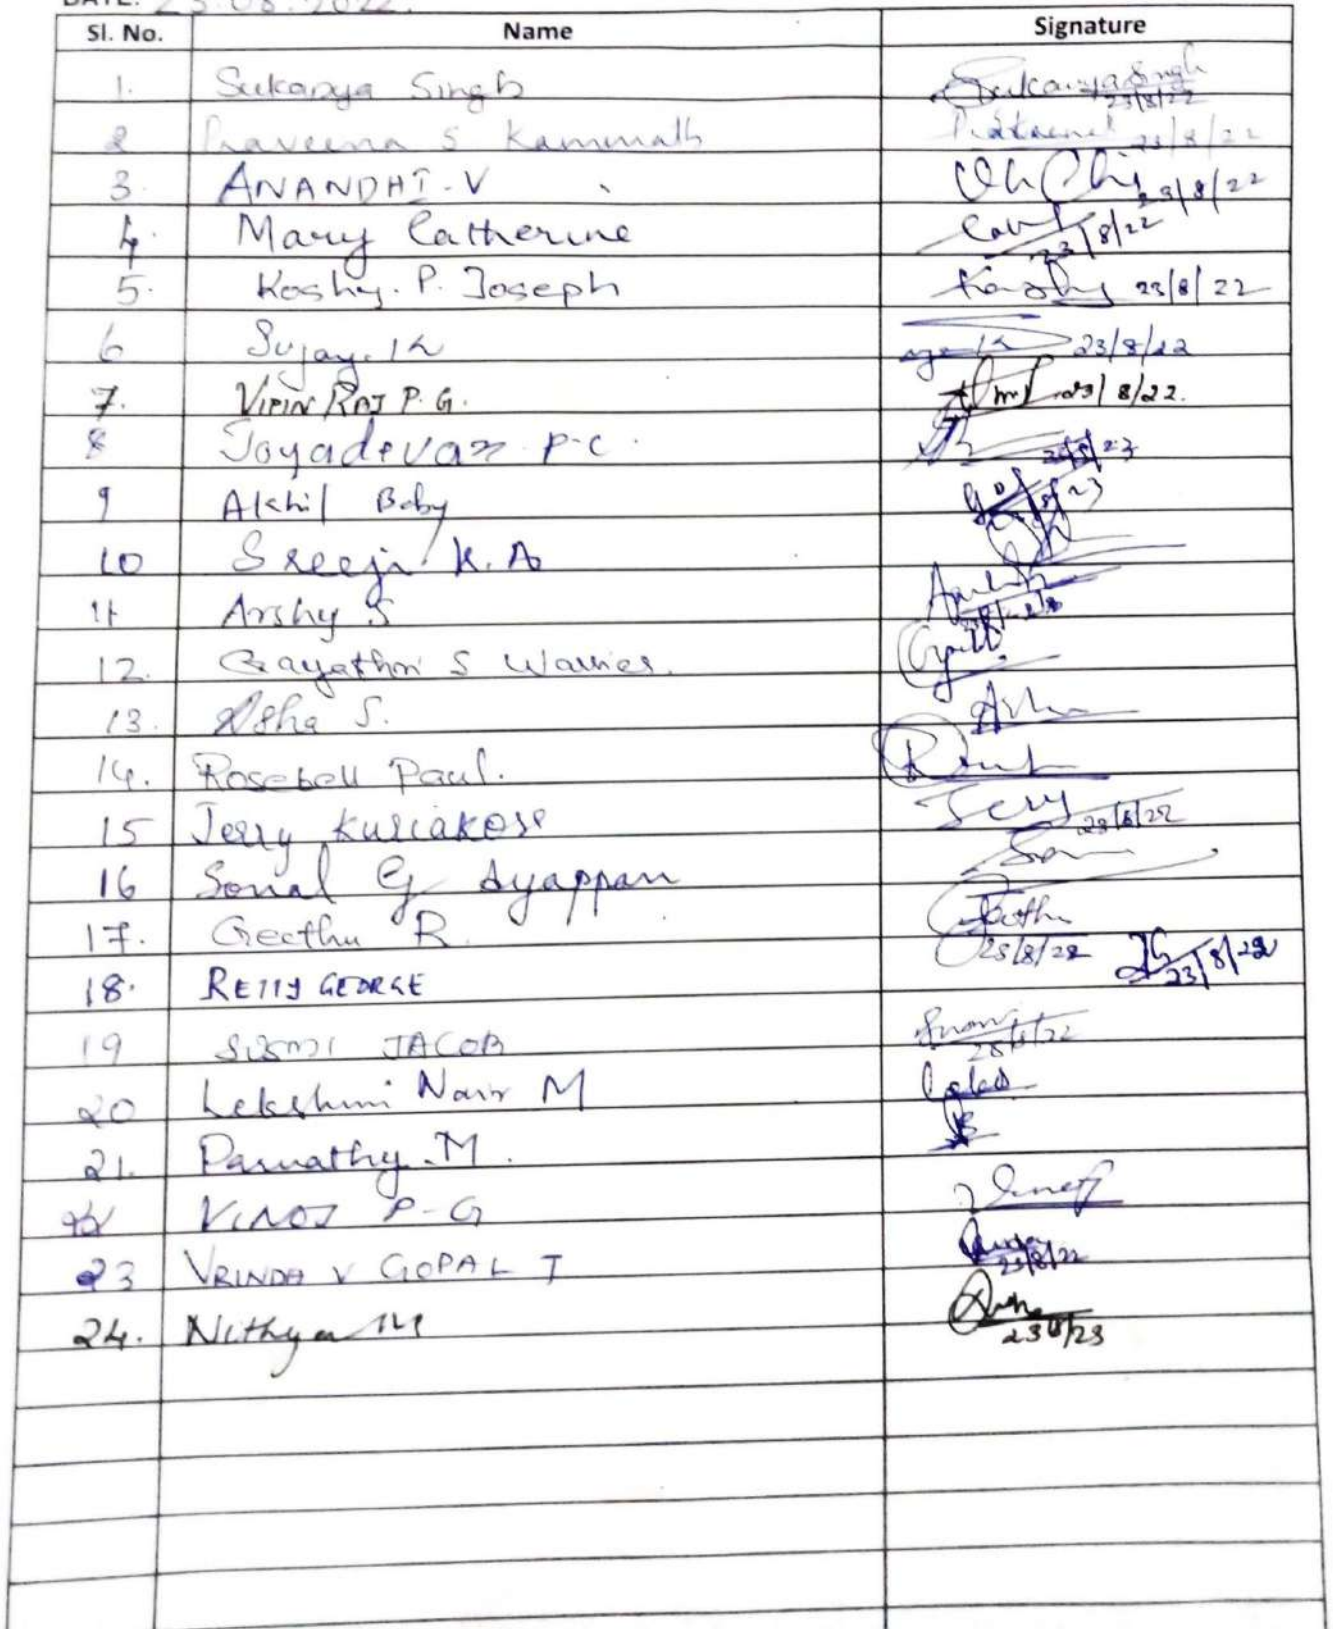 DATE: 23.08.2022.
Sl. No. Name Signature
1. Sukanya Singh Sukanya Singh 23/8/22
2 Praveena S Kammath 23/8/22
3. ANANDHI-V 23/8/22
4. Mary Catherine 23/8/22
5. Koshy. P. Joseph Koshy 23/8/22
6 Sujay. K 23/8/22
7. VIPIN RAJ P.G. 23/8/22.
8 Jayadevan P-C
9 Akhil Baby
10 Sreeja K.A
11 Arshy S
12. Gayathri S Warrier.
13. Asha S. Asha
14. Rosebell Paul.
15 Jerry Kuriakose Jerry 23/8/22
16 Sonal G Ayappan
17. Geethu R Geethu 23/8/22
18. RETTY GEORGE 23/8/22
19 SUSMI JACOB
20 Lekshmi Nair M
21. Parvathy.M.
22 VINOJ P-G
23 VRINDA V GOPAL T 23/8/22
24. Nithya M 23/8/23